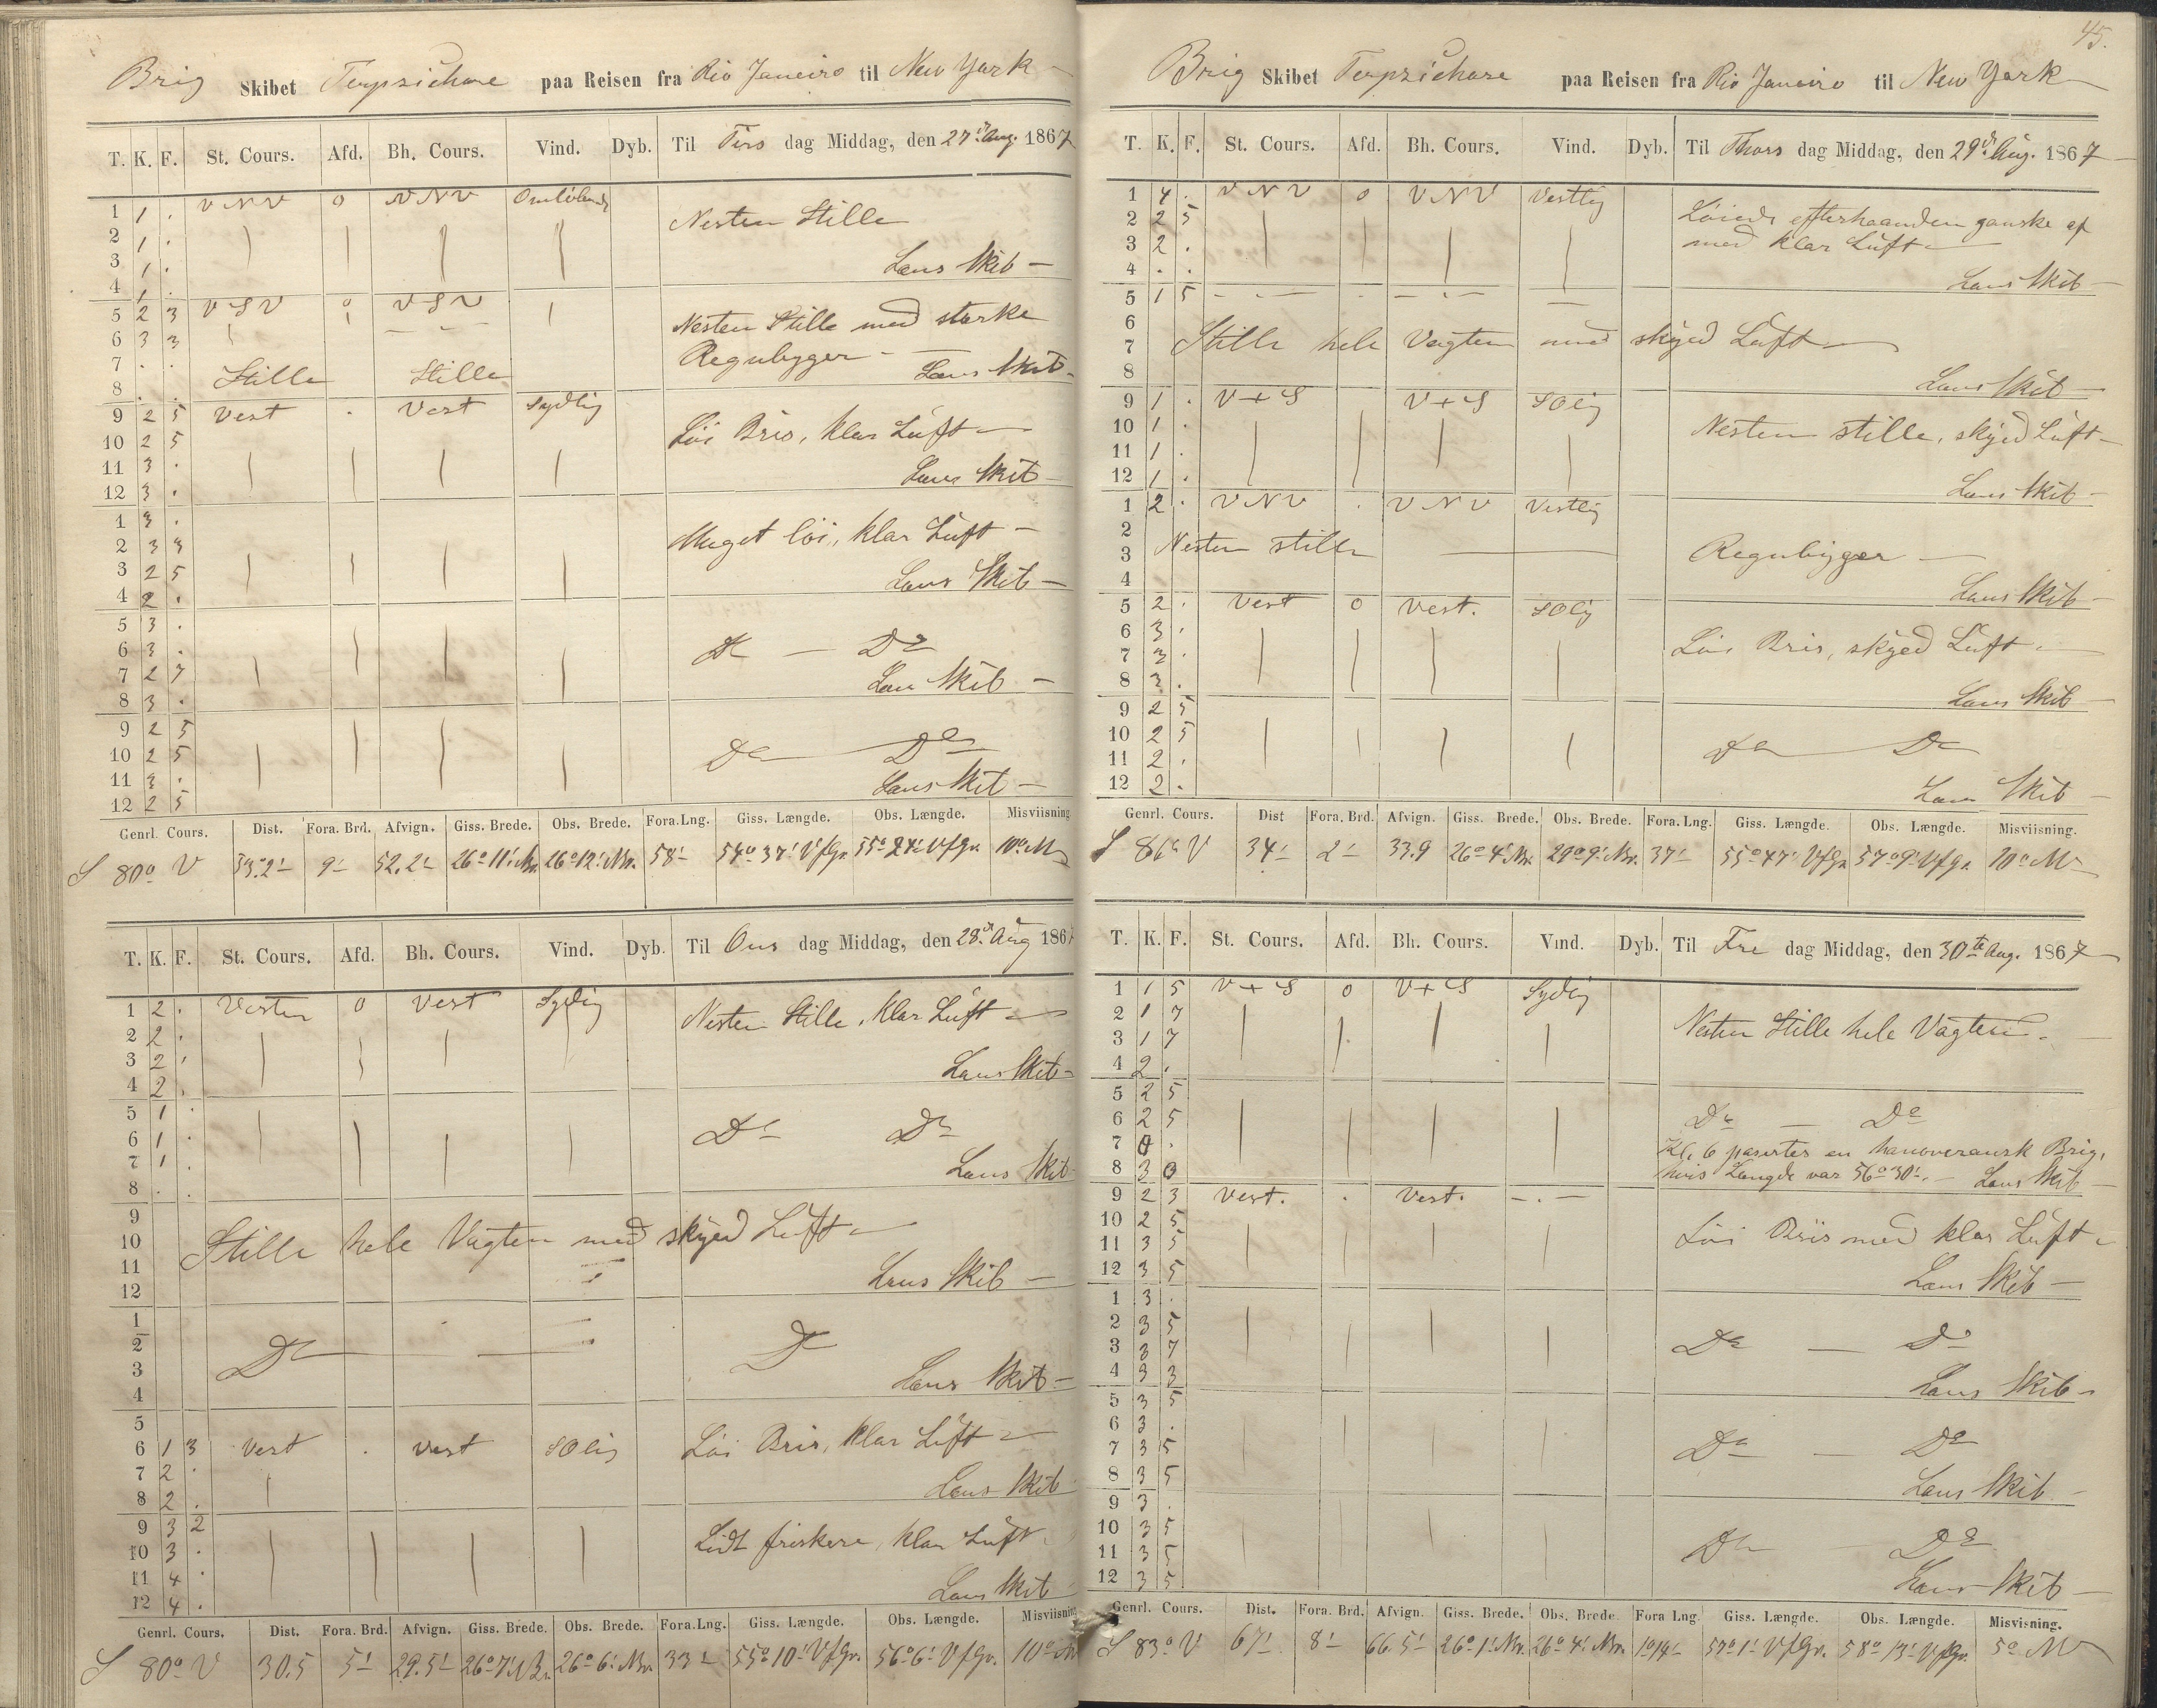 Brig Skibet Terpsichore paa Reisen fra Rio Janeiro til New York
T. K. F. St. Cours. Afd. Bh. Cours. Vind. Dyb. Til Tirs dag Middag, den 27de Aug. 1867
1 1 . VNV 0 VNV Omløbende
2 1 . Nesten Stille
3 1 . Lens Skib
4 1 .
5 2 3 VSV 0 VSV
6 3 3 Nesten Stille med stærke
7 . . Regnbyger
8 . . Stille Stille Lens Skib
9 2 5 Vest . Vest Sydlig
10 2 5 Løi Bris, klar Luft
11 3 . Lens Skib
12 3 .
1 3 .
2 3 3 Meget løi, klar Luft
3 2 5 Lens Skib
4 2 .
5 3 .
6 3 . Do — Do
7 2 7 Lens Skib
8 3 .
9 2 5
10 2 5 Do Do
11 3 . Lens Skib
12 2 5
Genrl. Cours. Dist. Fora. Brd. Afvign. Giss. Brede. Obs. Brede. Fora. Lng. Giss. Længde. Obs. Længde. Misviisning
S 80° V 53.2' 9' 52.2' 26° 11' Nr. 26° 12' Nr. 58' 54° 37' V f Gr. V f Gr. 10° M
T. K. F. St. Cours. Afd. Bh. Cours. Vind. Dyb. Til Ons dag Middag, den 28de Aug 1867
1 2 . Vesten 0 Vest Sydlig
2 2 . Nesten Stille, klar Luft
3 2 . Lens Skib
4 2 .
5 1 .
6 1 . Do Do
7 1 . Lens Skib
8 . .
9
10 Stille hele Vagten med skyed Luft
11 Lens Skib
12
1
2 Do Do
3 Lens Skib
4
5
6 1 3 Vest . Vest SOlig Løi Bris, klar Luft
7 2 .
8 2 . Lens Skib
9 3 2
10 3 . Lidt friskere, klar Luft
11 4 .
12 4 . Lens Skib
Genrl. Cours. Dist. Fora. Brd. Afvign. Giss. Brede. Obs. Brede. Fora. Lng. Giss. Længde. Obs. Længde. Misviisning
S 80° V 30.5 5' 29.5' 26° 7' Nr. 26° 6' Nr. 33' 55° 10' V f Gr. 56° 6' V f Gr. 10° M
45.
Brig Skibet Terpsichore paa Reisen fra Rio Janeiro til New York
T. K. F. St. Cours. Afd. Bh. Cours. Vind. Dyb. Til Thors dag Middag, den 29de Aug. 1867
1 4 . VNV 0 VNV Vestlig
2 2 5 Løiede efterhaanden ganske af
3 2 . med klar Luft
4 . . Lens Skib
5 1 5
6
7 Stille hele Vagten med skyed Luft
8 Lens Skib
9 1 . V + S V + S SOlig
10 1 . Nesten stille, skyed Luft
11 1 .
12 1 . Lens Skib
1 2 . VNV . VNV Vestlig
2
3 Nesten stille Regnbyger
4 Lens Skib
5 2 . Vest 0 Vest. SOlig
6 3 .
7 3 . Løi Bris, skyed Luft
8 3 . Lens Skib
9 2 5
10 2 5 Do Do
11 2 .
12 2 . Lens Skib
Genrl. Cours. Dist Fora. Brd. Afvign. Giss. Brede. Obs. Brede. Fora. Lng. Giss. Længde. Obs. Længde. Misviisning.
S 86° V 34' 2' 33.9 26° 4' Nr. 37' 55° 47' V f Gr. 57° 9' V f Gr. 10° M
T. K. F. St. Cours. Afd. Bh. Cours. Vind. Dyb. Til Fre dag Middag, den 30te Aug. 1867
1 1 5 V + S 0 V + S Sydlig
2 1 7 Nesten Stille hele Vagten.
3 1 7
4 2 .
5 2 5
6 2 5 Do — Do
7 0 . Kl. 6 paseertes en hanoveransk Brig,
8 3 0 hvis Længde var 56° 30'. Lens Skib
9 2 3 Vest. . Vest.
10 2 5
11 3 5 Løi Bris med klar Luft
12 3 5 Lens Skib
1 3 .
2 3 5
3 3 7 Do — Do
4 3 3 Lens Skib
5 3 5
6 3 .
7 3 5 Do — Do
8 3 5 Lens Skib
9 3 .
10 3 5
11 3 5 Do Do
12 3 5 Lens Skib
Genrl. Cours. Dist. Fora. Brd. Afvign. Giss. Brede. Obs. Brede Fora Lng. Giss. Længde. Obs. Længde. Misvisning.
S 83° V 67' 8' 66.5' 26° 1' Nr. 26° 4' Nr. 1° 14' 57° 1' V f Gr. 58° 13' V f Gr. 5° M